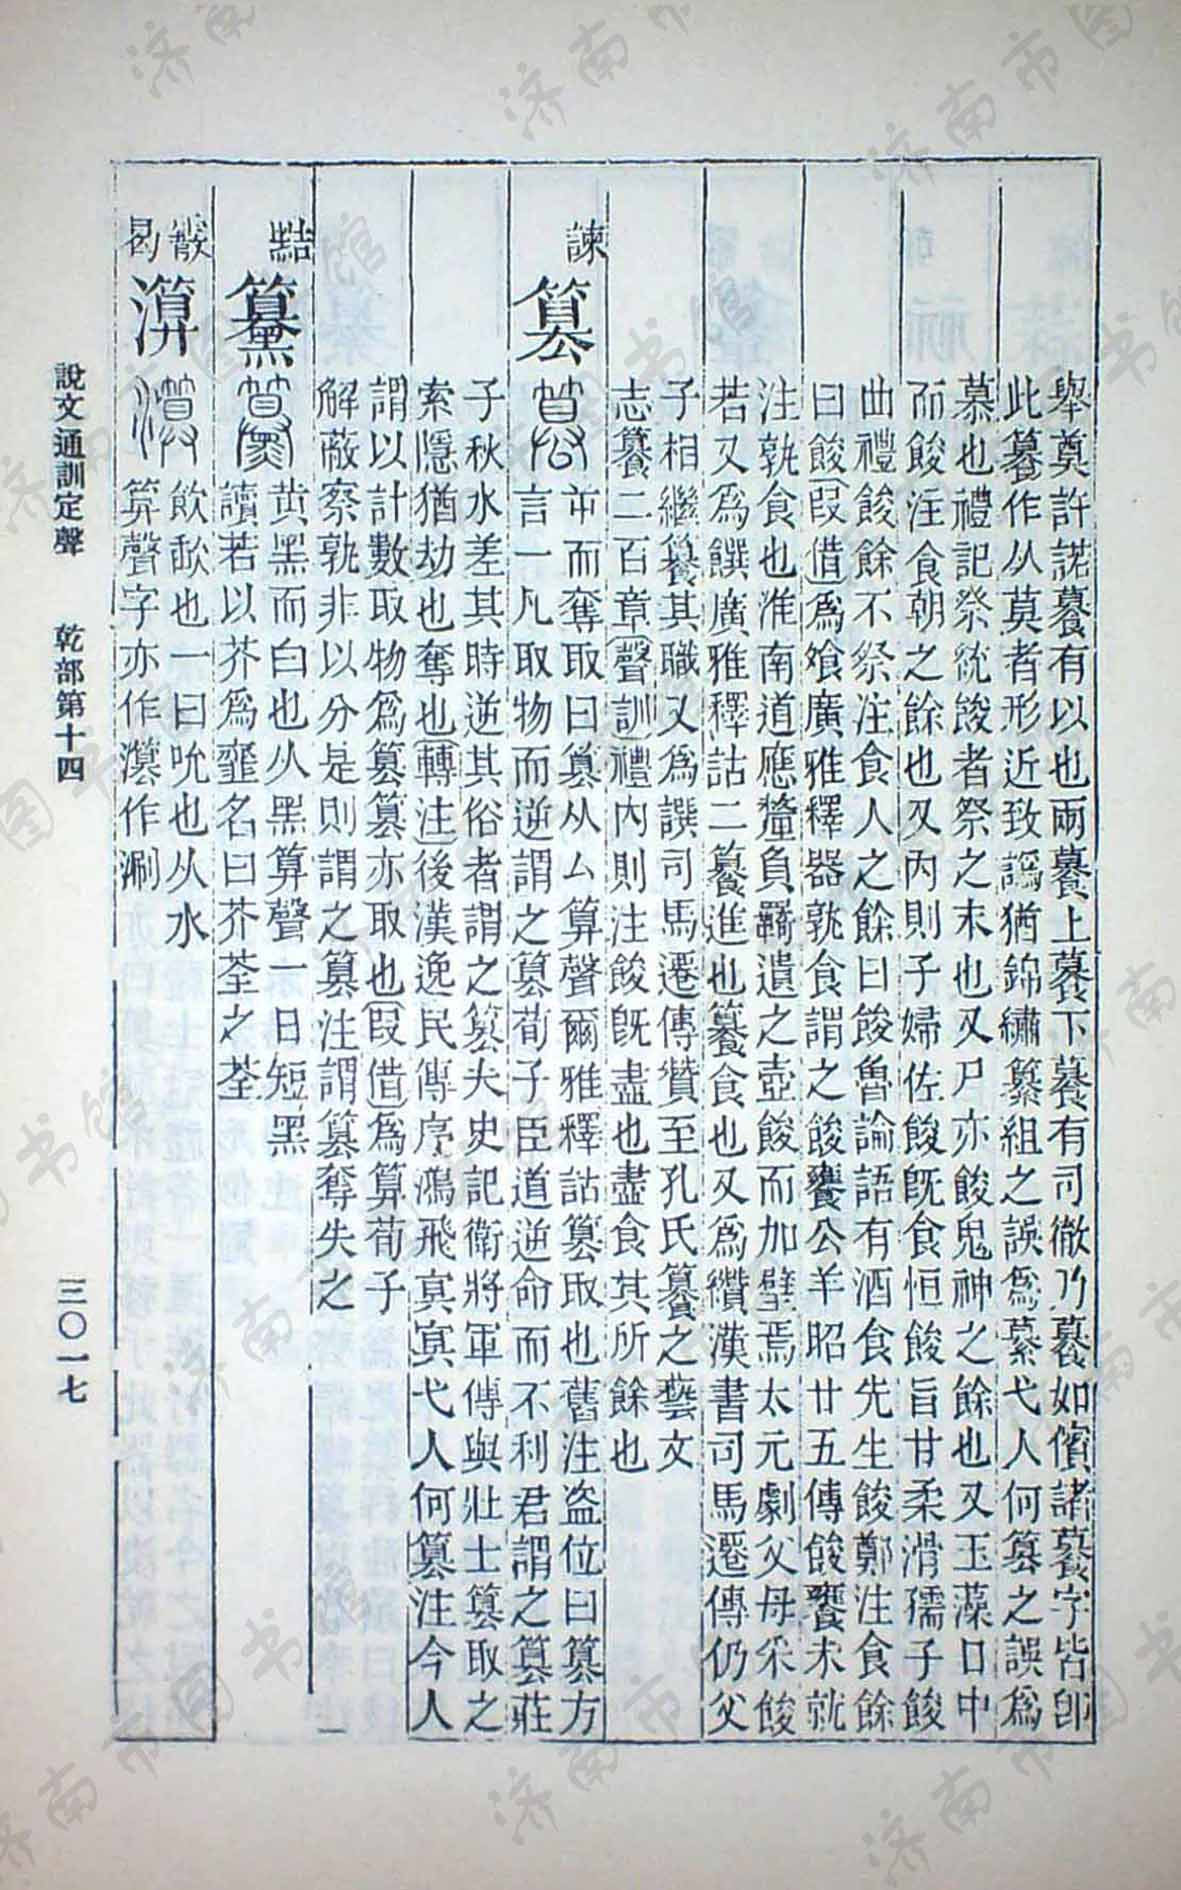 舉奠許諾䉵有以也兩䉵上䉵下䉵有司徹乃䉵如儐諸䉵字皆卽
此籑作从莫者形近致譌猶錦繡纂組之誤爲綦弋人何篡之誤爲
慕也禮記祭統餕者祭之末也又尸亦餕鬼神之餘也又玉藻日中
而餕注食朝之餘也又內則子婦佐餕旣食恒餕旨甘柔滑孺子餕
曲禮餕餘不祭注食人之餘曰餕魯論語有酒食先生餕鄭注食餘
曰餕叚借爲飧廣雅釋器孰食謂之餕饔公羊昭廿五傳餕饔未就
注孰食也淮南道應釐負羈遺之壺餕而加璧焉太元劇父母采餕
若又爲饌廣雅釋詁二籑進也籑食也又爲纘漢書司馬遷傳仍父
子相繼籑其職又爲譔司馬遷傳贊至孔氏籑之藝文
志籑二百章聲訓禮內則注餕旣盡也盡食其所餘也
諫
篡
屰而奪取曰篡从厶算聲爾雅釋詁篡取也舊注盜位曰篡方
言一凡取物而逆謂之篡荀子臣道逆命而不利君謂之篡莊
子秋水差其時逆其俗者謂之篡夫史記衛將軍傳與壯士篡取之
索隱猶劫也奪也轉注後漢逸民傳序鴻飛冥冥弋人何篡注今人
謂以計數取物爲篡篡亦取也叚借爲算荀子
解蔽察孰非以分是則謂之篡注謂篡奪失之
黠
䵵
黃黑而白也从黑算聲一曰短黑
讀若以芥爲齏名曰芥荃之荃
㪚
曷
㵀
飲歃也一曰吮也从水
算聲字亦作灒作涮
說文通訓定聲 乾部第十四
三〇一七
济南市图书馆